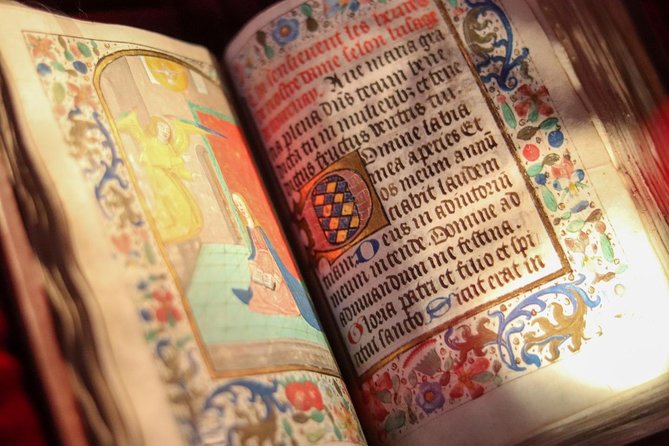 les heures
nostre dame selon lusage
Aue maria gra
plena dñs tecum bene
tu in mulieribꝫ et bñe
fructus ventris tui
Domine labia
mea aperies Et
os meum annũ
ciabit laudem
tuam Deus in adiutoriũ
meum intende. Domine ad
adiuuandum me festina.
Gloria patri et filio et spi
ritui sancto Sicut erat in